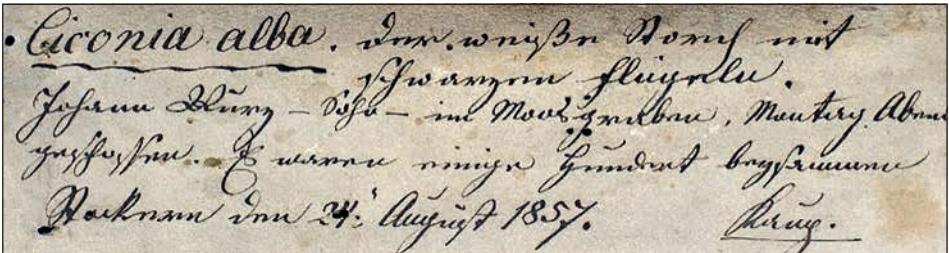 Ciconia alba. der weiße Storch mit
schwarzen Flügeln.
Johann Wurz – Sohn – im Moosgraben, Montag Abend
geschossen. Es waren einige Hundert beysammen
Stockern den 24. August 1857. Kaup.